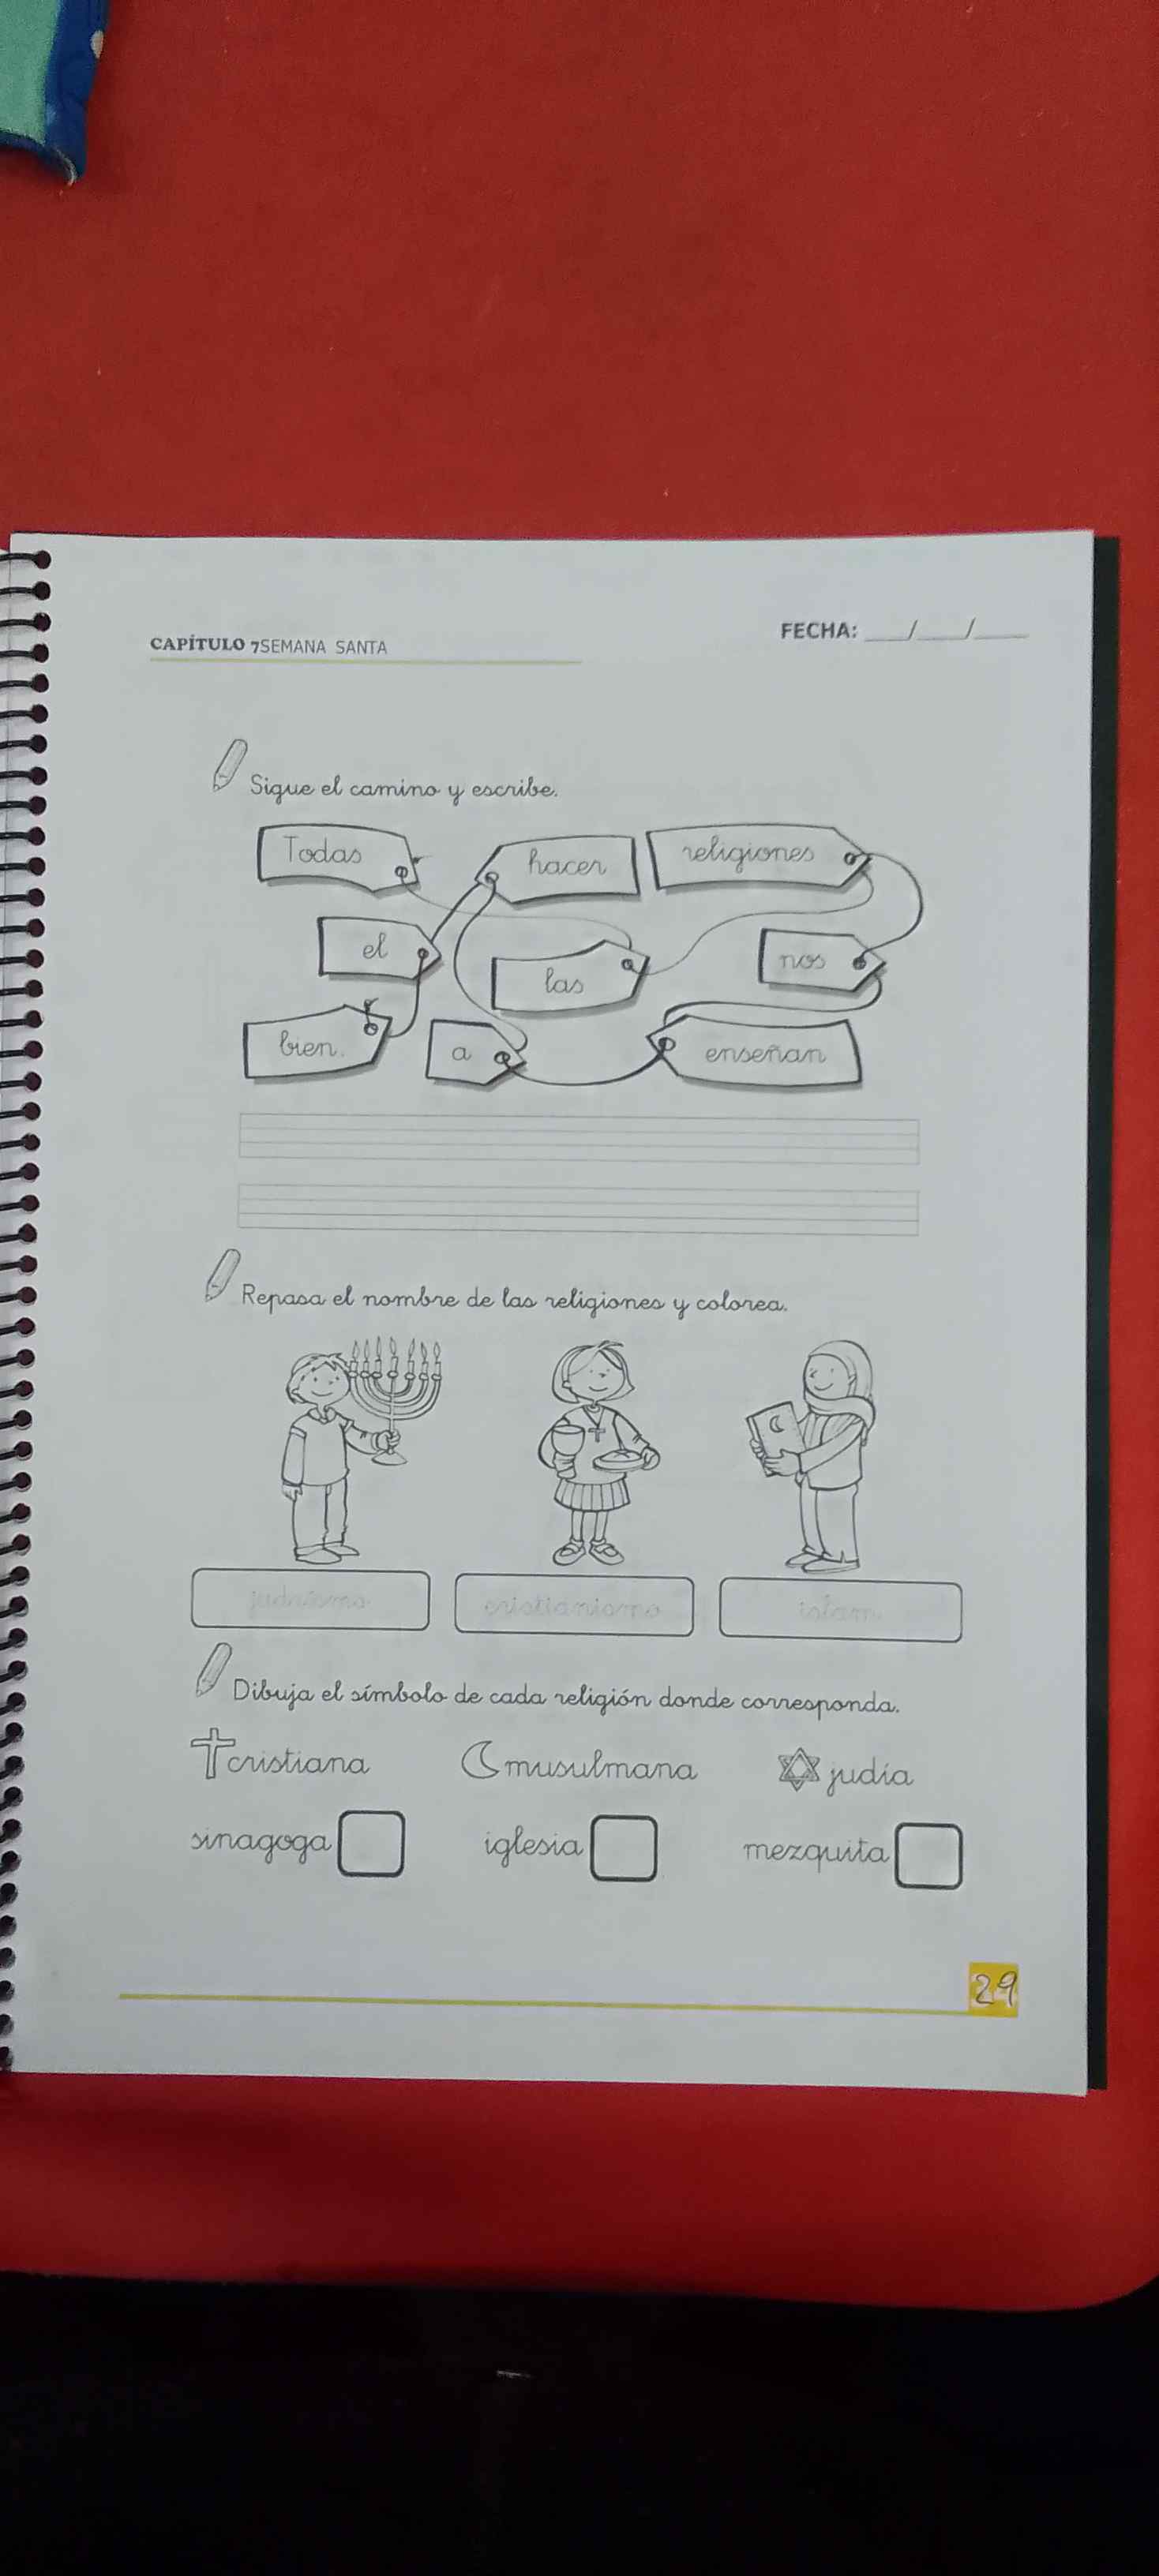 CAPÍTULO 7 SEMANA SANTA
FECHA: ___/___/___
Sigue el camino y escribe.
Todas hacer religiones
el las nos
bien. a enseñan
Repasa el nombre de las religiones y colorea.
judaísmo cristianismo islam
Dibuja el símbolo de cada religión donde corresponda.
cristiana musulmana judía
sinagoga iglesia mezquita
29